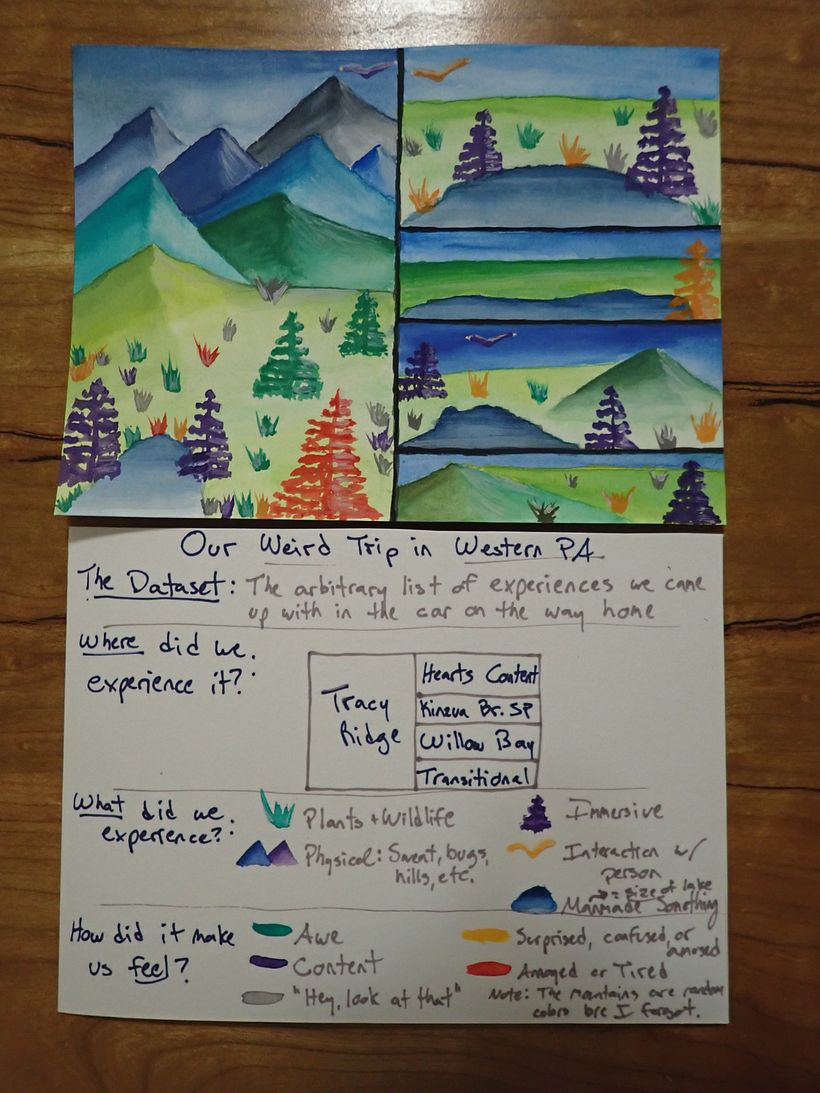 Our Weird Trip in Western PA
The Dataset: The arbitrary list of experiences we came
up with in the car on the way home
Where did we
experience it?:
Tracy
Ridge
Hearts Content
Kinzua Br. SP
Willow Bay
Transitional
What did we
experience?:
Plants + Wildlife
Physical: Sweat, bugs,
hills, etc.
Immersive
Interaction w/
person
= size of lake
Manmade Something
How did it make
us feel?
Awe
Content
"Hey, look at that"
Surprised, confused, or
amused
Annoyed or Tired
Note: The mountains are random
colors b/c I forgot.